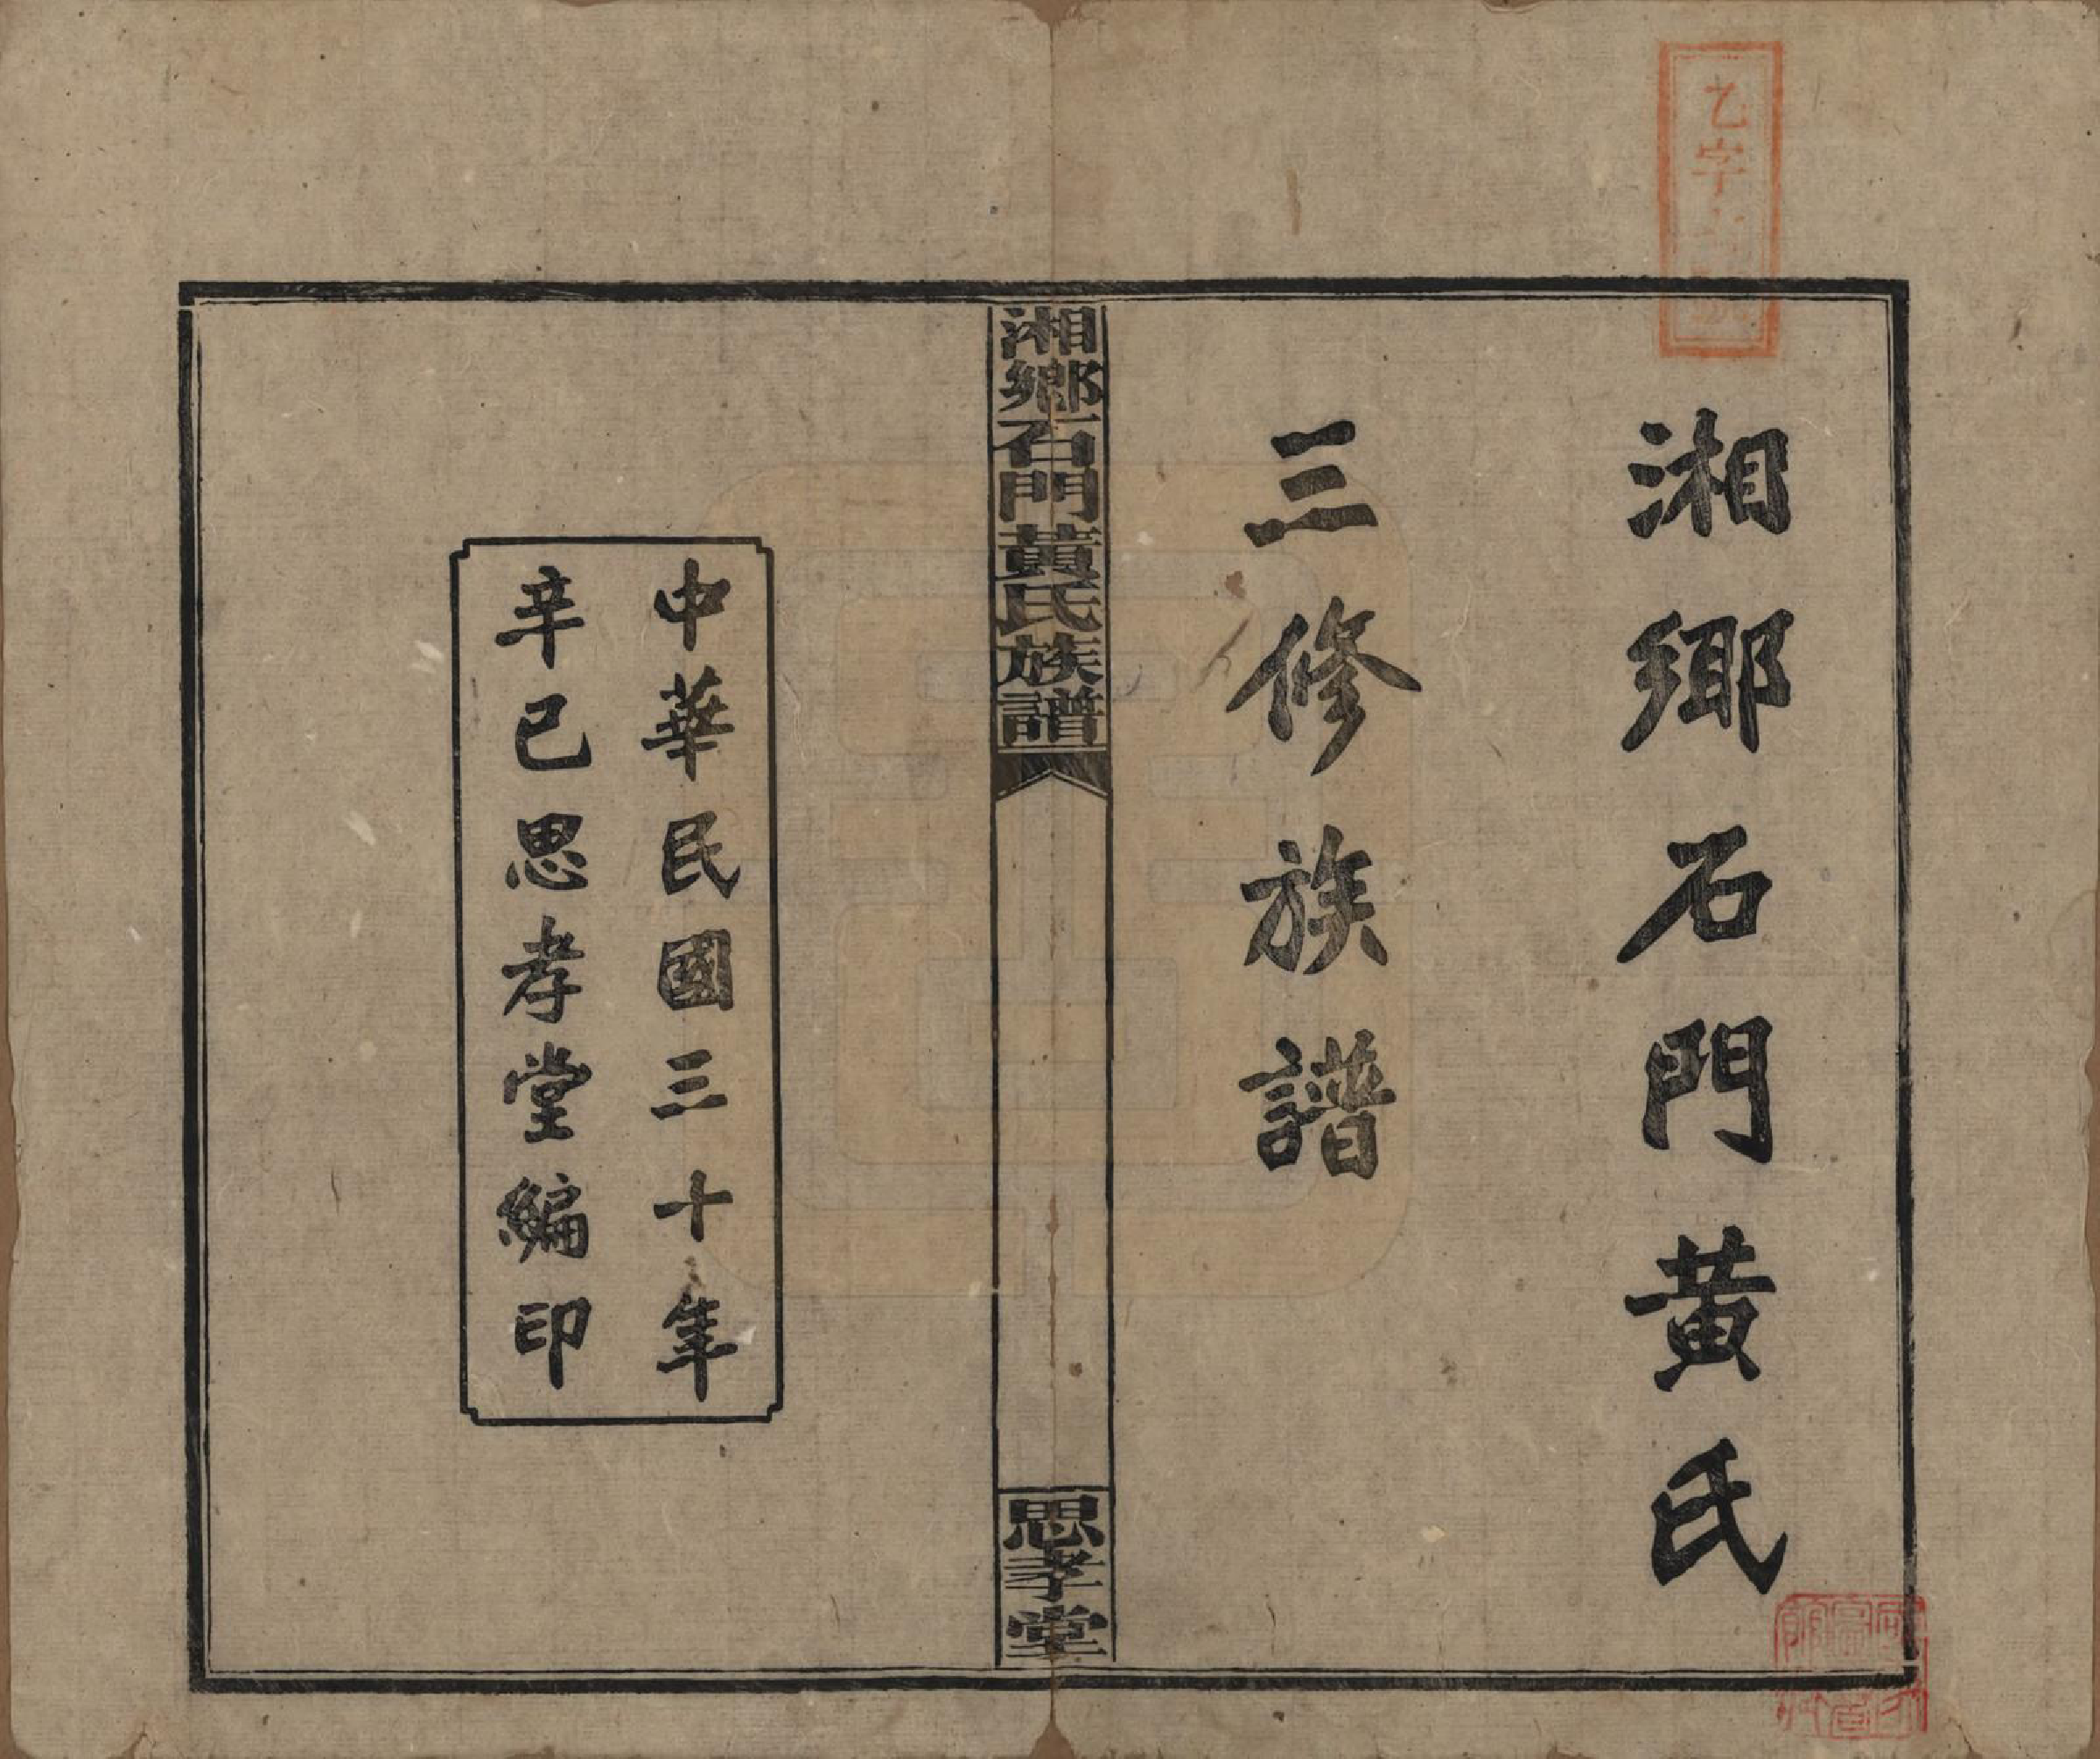 乙字
湘鄉石門黃氏
三修族譜
湘鄉石門黃氏族譜
思孝堂
中華民國三十年
辛巳思孝堂編印